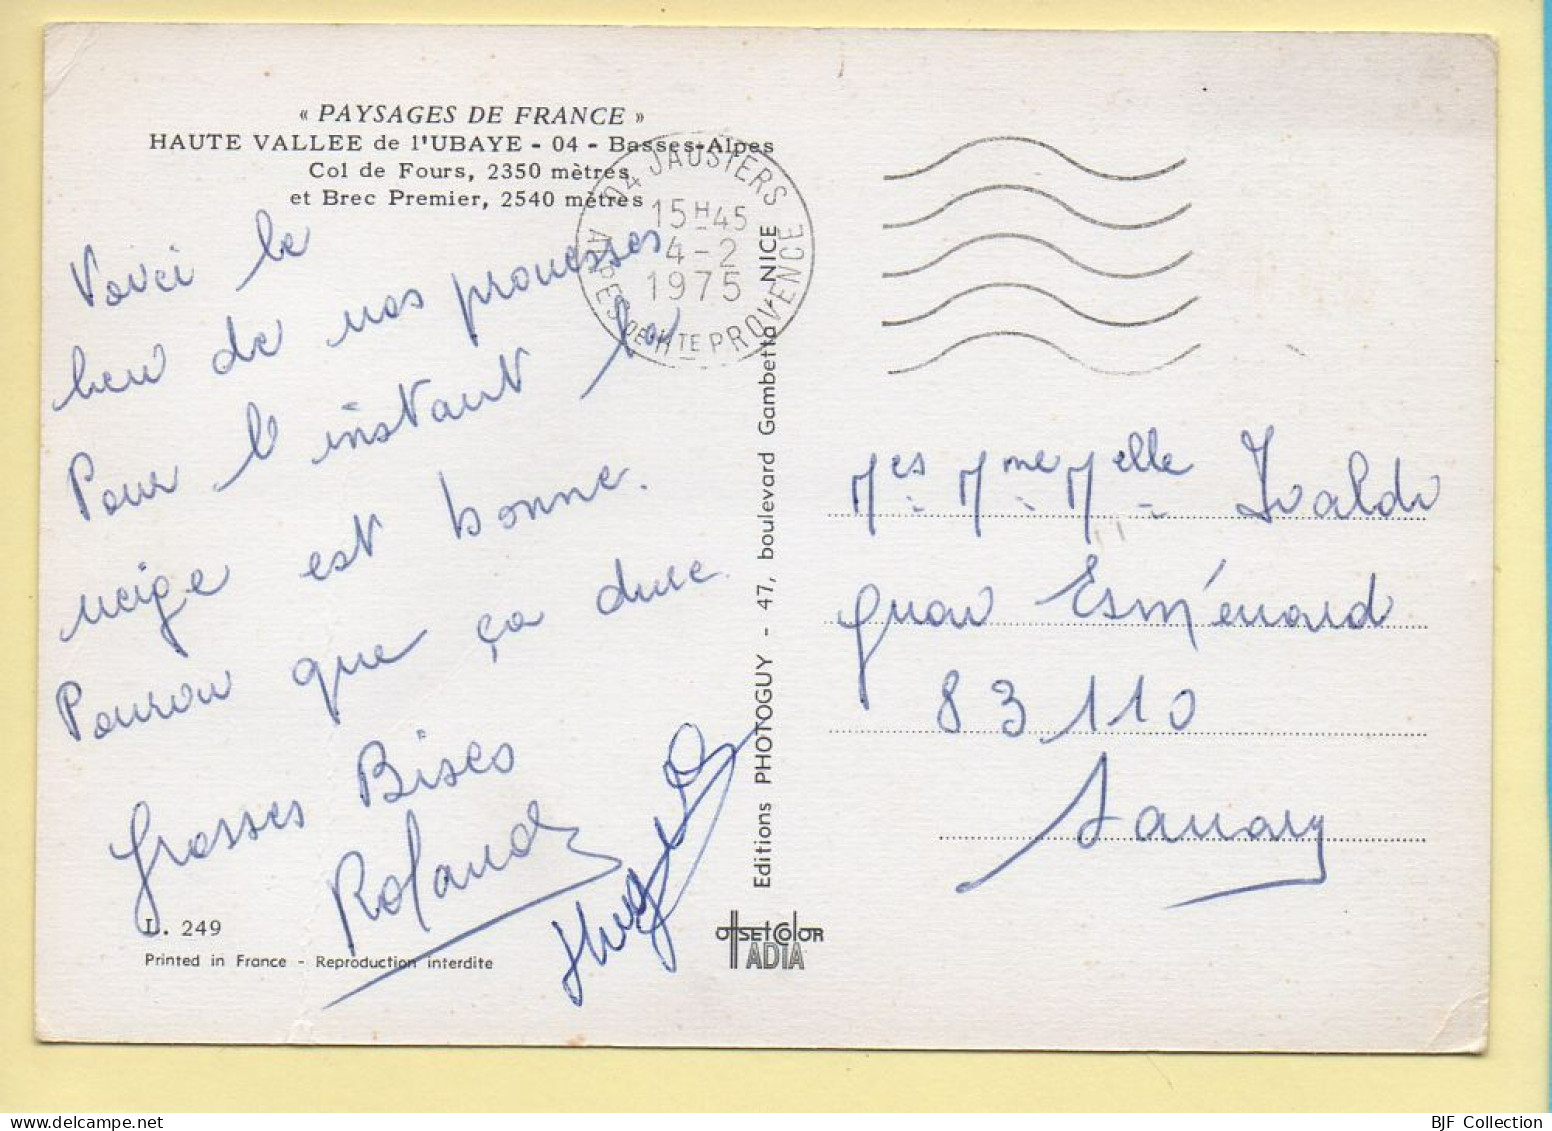 « PAYSAGES DE FRANCE »
HAUTE VALLEE de l'UBAYE - 04 - Basses-Alpes
Col de Fours, 2350 mètres
et Brec Premier, 2540 mètres
04 JAUSIERS
15H45
4-2
1975
ALPES DE HTE PROVENCE
Voici le
lieu de nos prouesses
Pour l'instant la
neige est bonne.
Pourvu que ça dure.
Grosses Bises
Roland
L. 249
Printed in France - Reproduction interdite
Editions PHOTOGUY - 47, boulevard Gambetta, NICE
OffSET COLOR
ADIA
Mes Mme Melle Ivaldi
Quai Esménard
83110
Sanary
BJF Collection